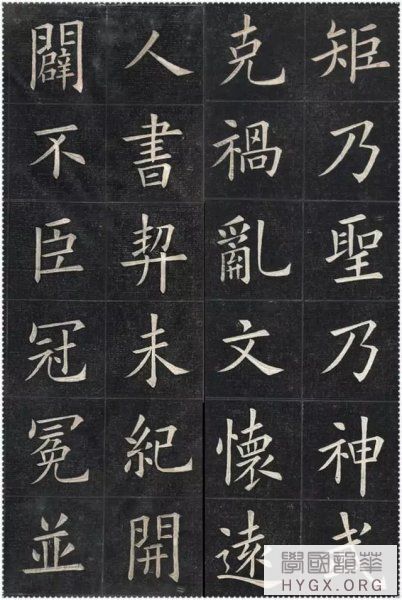 矩乃聖乃神武
克禍亂文懷遠
人書契未紀開
闢不臣冠冕並
華韻國學
HYGX.ORG